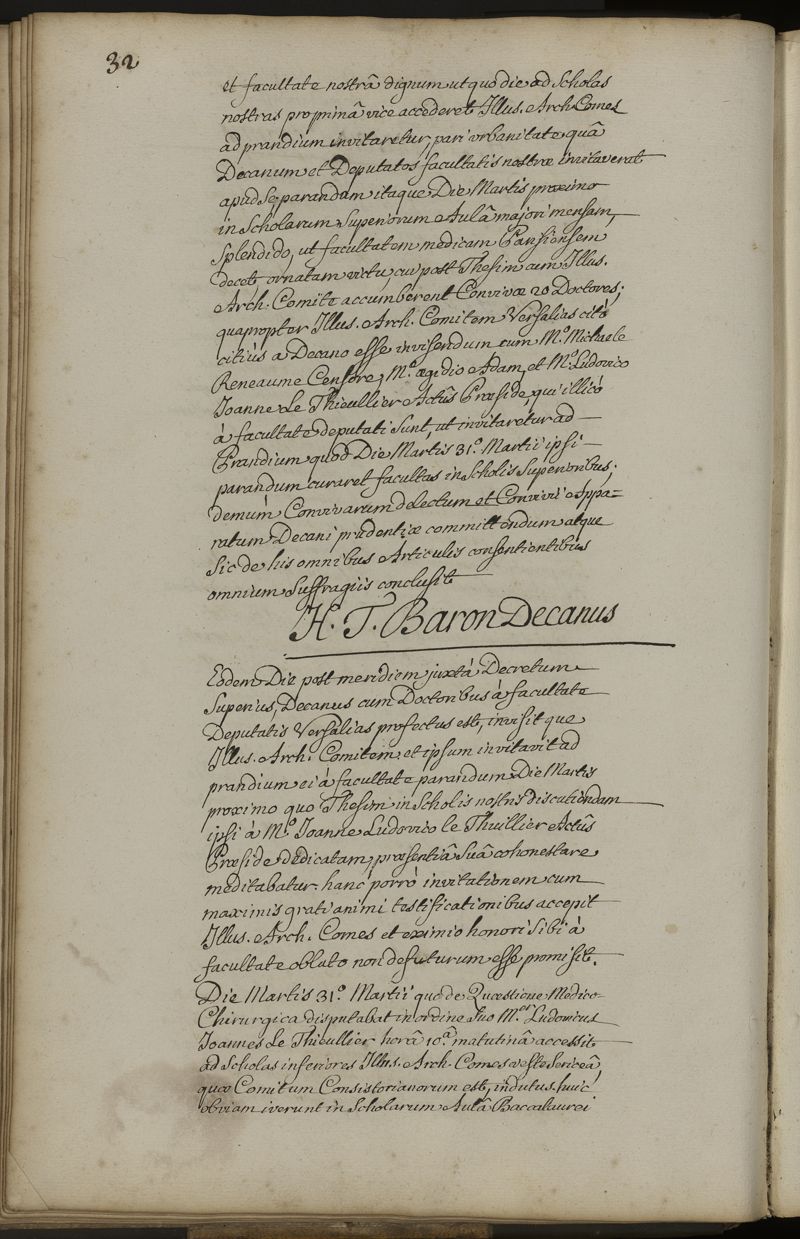 32
et facultate nostrâ dignum ut quo die ad Scholas
nostras pro primâ vice accederet Illus. Arch. Comes
ad prandium invitaretur, pari urbanitate quâ
Decanum et Deputatos facultatis nostræ invitaverat
apud Se, parandam itaque Die Martis proximo
in Scholarum Superiorum Aulâ majori mensam,
Splendido, ut facultatem medicam Parisiensem
decet, ornatam victu, cui post Thesim cum Illus.
Arch. Comite accumberent Convivæ 20 Doctores;
quapropter Illus. Arch. Comitem Versalias citò
citiùs a Decano esse invisendum cum M.º Michaele
Reneaume Censore, M.º ægidio Adam, et M.º Ludovico
Joanne Le Thieullier Actûs Præside, qui illicò
à facultate deputati Sunt, ut invitaretur ad
Prandium quod Die Martis 31.º Martii ipsi
parandum curaret facultas in Scholis Superioribus;
demùm Convivarum delectum et Convivii Appa=
ratum Decani prudentiæ committendum atque
Sic de his omnibus Articulis consentientibus
omnium Suffragiis conclusit
H. T. Baron Decanus
Eodem Die post meridiem juxtà Decretum
Superius, Decanus cum Doctoribus à facultate
Deputatis Versalias profectus est, invisitque
Illus. Arch. Comitem, et ipsum invitavit ad
prandium ei à facultate parandum Die Martis
proximo quo Thesim in Scholis nostris discutiendam
ipsi à M.º Joanne Ludovico le Thuillier Actûs
Præside dedicatam, præsentiâ Suâ cohonestare
meditabatur. hanc porrò invitationem cum
maximis grati animi testificationibus accepit
Illus. Arch. Comes et eximio honori Sibi à
facultate oblato non defuturum esse promisit.
Die Martis 31.º Martii quo de Quæstione Medico-
Chirurgica disputabat in ordine Suo M.er Ludovicus
Joannes Le Thieullier horâ 10.ª matutinâ accessit
ad Scholas inferiores Illus. Arch. Comes veste Sericeâ,
quæ Comitum Consistorianorum est, indutus. huic
obviam iverunt in Scholarum Aulâ Baccalaurei